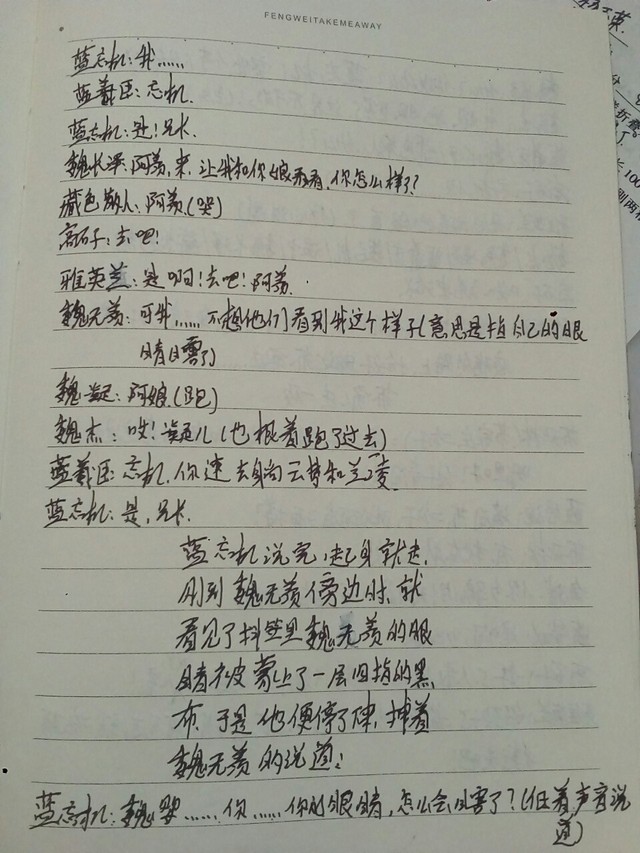 FENGWEITAKEMEAWAY
蓝忘机:我......
蓝羲臣:忘机.
蓝忘机:是!兄长.
魏长泽:阿羡,来,让我和你娘看看,你怎么样了?
藏色散人:阿羡(哭)
离石子:去吧!
雅英兰:是啊!去吧!阿羡.
魏无羡:可我......不想他们看到我这个样子(意思是指自己的眼
睛瞎了)
魏凝:阿娘(跑)
魏杰:哎!凝儿(也跟着跑了过去)
蓝羲臣:忘机,你速去命向云梦和兰陵
蓝忘机:是,兄长.
蓝忘机说完,起身就走.
刚到魏无羡傍边时,就
看见了抖笠里魏无羡的眼
睛被蒙上了一层四指的黑
布,于是他便停了下,抻着
魏无羡的说道:
蓝忘机:魏婴......你......你的眼睛,怎么会瞎了?(低着声音说
道)